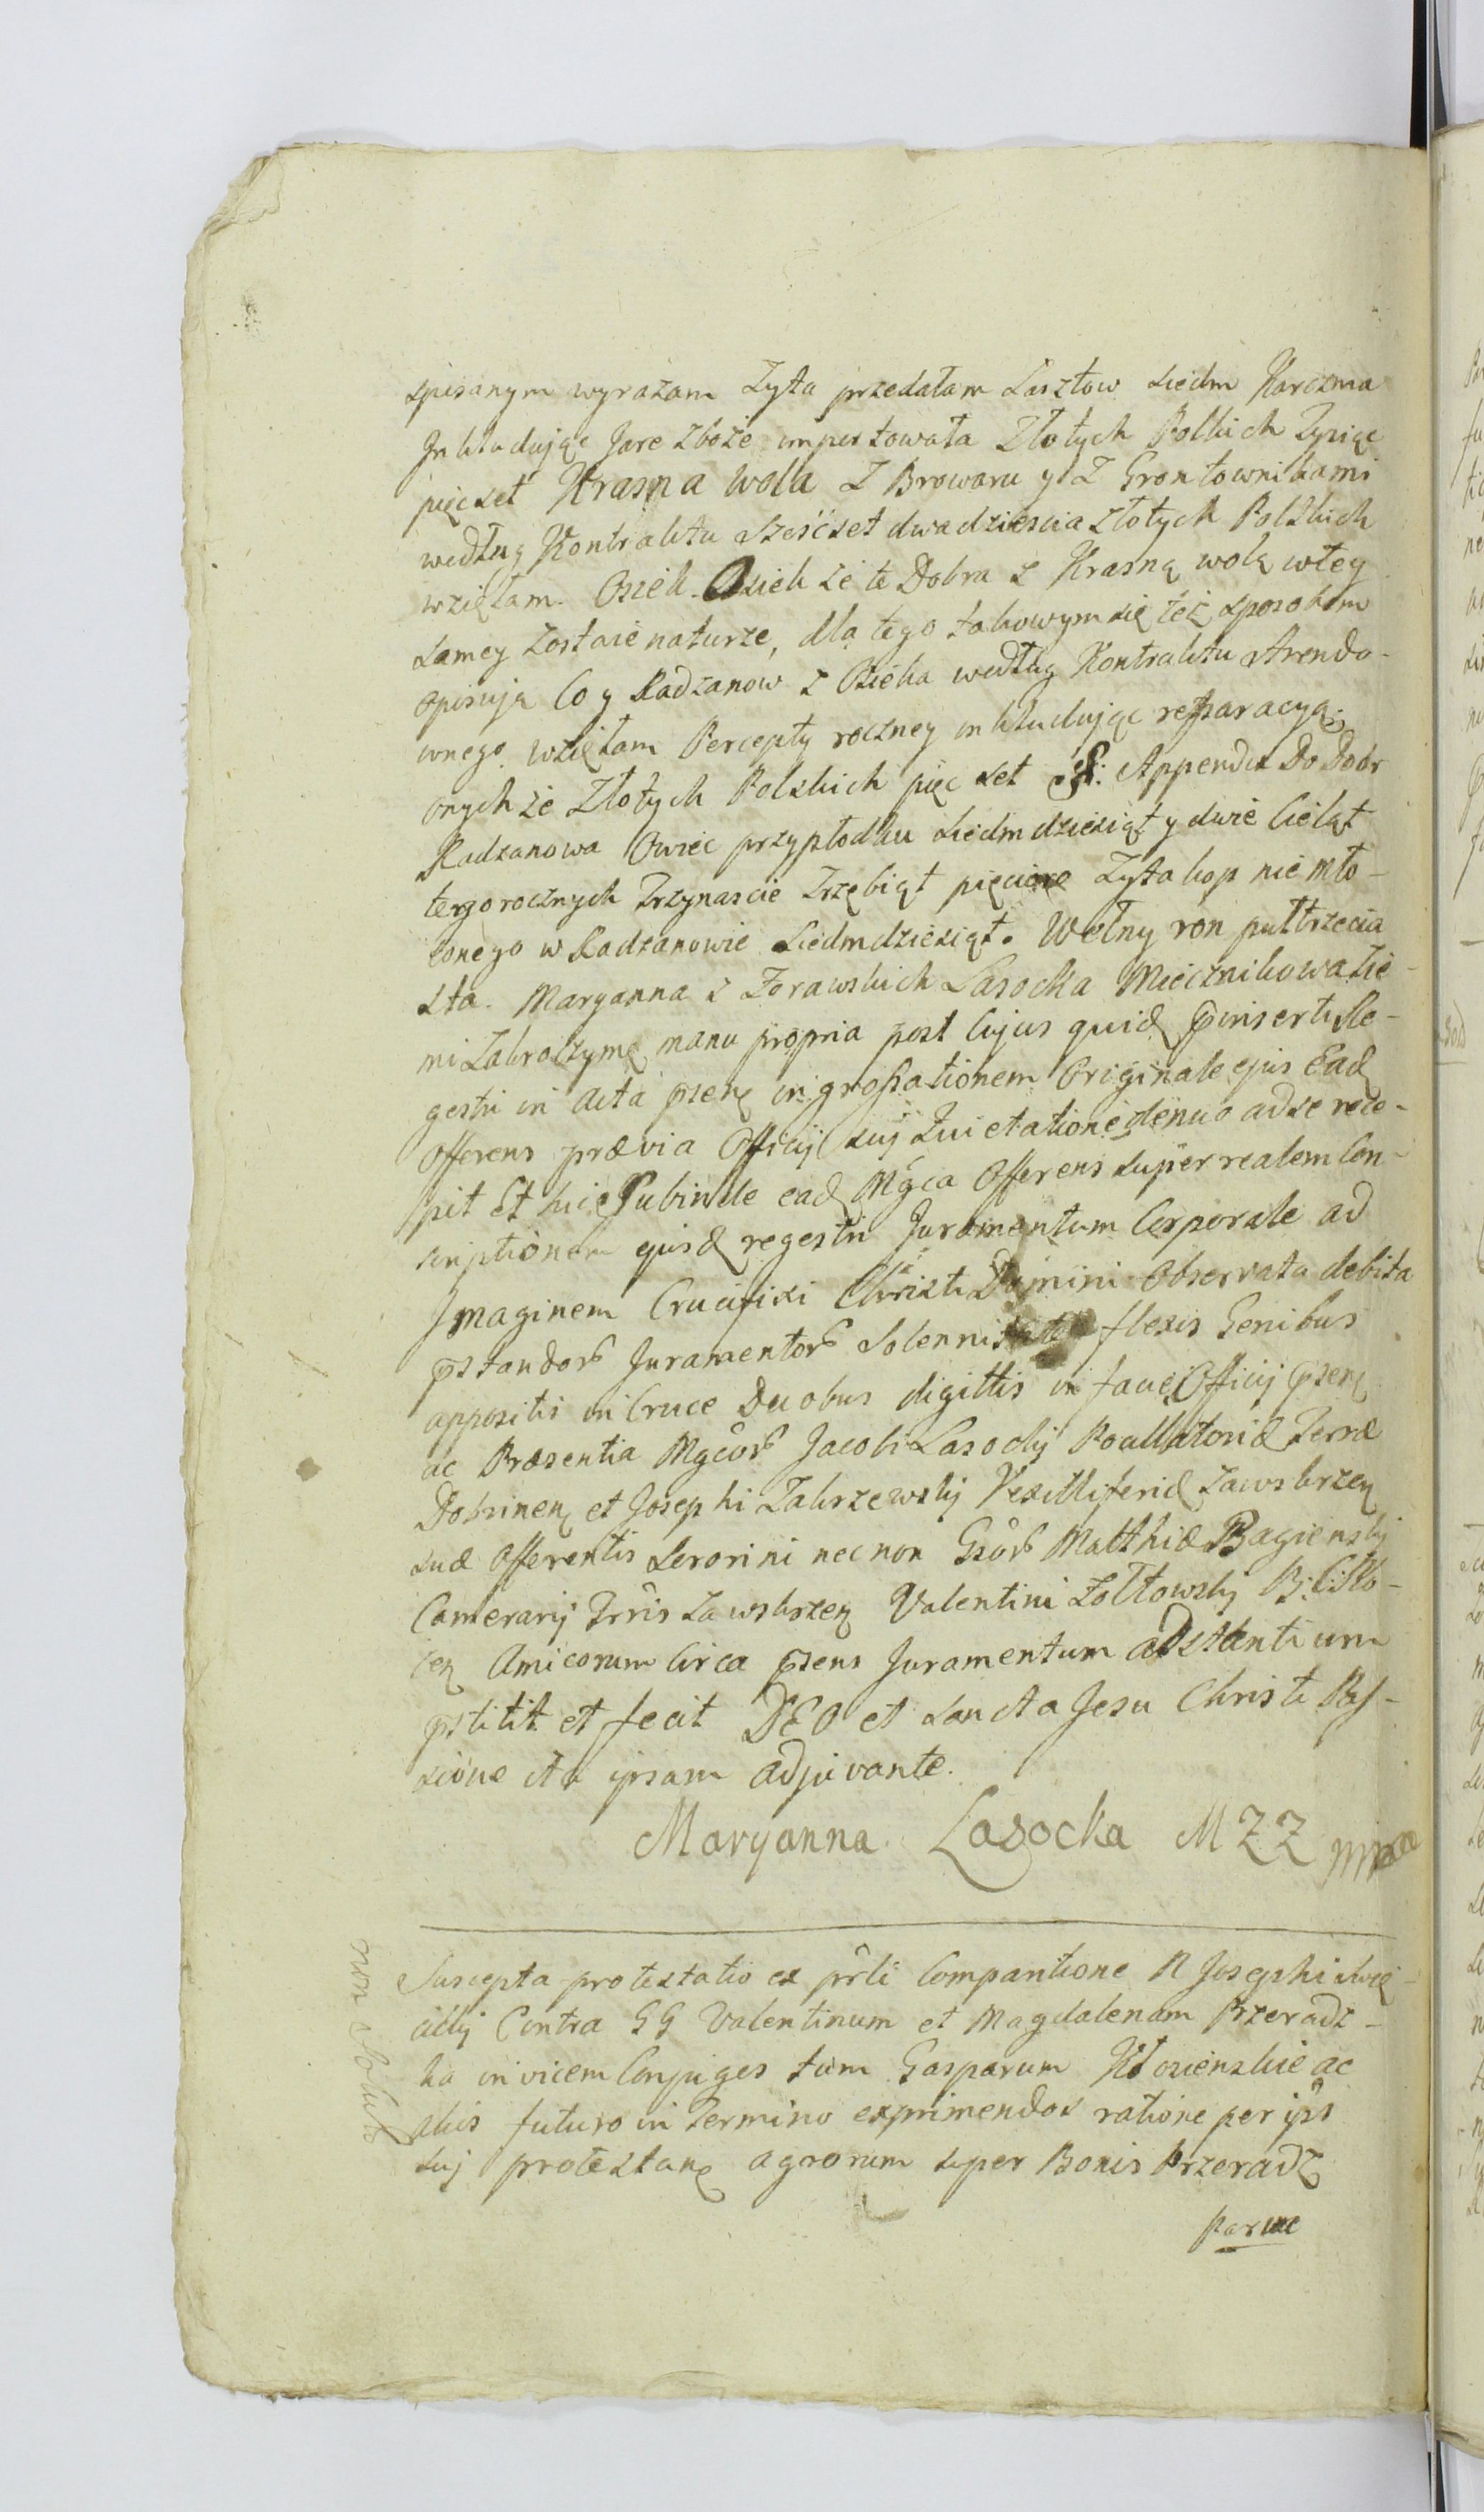 spisanym wyrazam Zyta przedałam Łasztow siedm Karczma
Jnkludując Jare zboże importowała Złotych Polkich Tysiąc
pięcset Krasna wola z Browaru y z Grontownikami
według Kontraktu sześćset dwadziescia złotych Polskich
wzięłam. Osiek. Osiek że te Dobra z Krasną wolą wtey
samey zostaie naturze, dla tego takowym się też sposobem
opisują Co y Radzanow z Osieka według Kontraktu Arendo-
wnego wzięłam Percepty roczney inkludując reparacyą
onychże Złotych Polskich pięc set Appendix Do Dobr
Radzanowa Owiec przypłodku siedmdziesiąt y dwie Cieląt
tegorocznych Trzynascie Zrzębiąt pięcioro Zyta kop nie mło-
conego w Radzanowie siedmdziesiąt. Wełny ron pułtrzecia
sta. Maryanna z Zorawskich Lasocka Miecznikowa Zie-
mi Zakroczymę manu propria post Cujus quid pinserti Re-
gestri in Acta psenę ingrossationem Originale ejus Ead
Offerens prævia Officij suj Quietatione denuo ad se rece-
pit Et hic Subinde ead Mgca Offerens super realem Con-
scriptionem ejusd regestri Juramentum Corporale ad
Jmaginem Crucifixi Christi Domini Observata debita
pstandorū Juramentorū Solennitate flexis Genibus
appositis in Cruce Duobus digittis in facie Officij psenę
ac Præsentia Mgcorū Jacobi Lasockj Pocillatorid Terræ
Dobrinenę et Josephi Zakrzewskj Vexilliferid Zawskrzenę
suæ Offerentis Sororini necnon Gsorū Matthiæ Bagienskj
Camerarij Trris Zawskrzenę Valentini Zołtowskj
Amicorum Circa psens Juramentum adstantium
pstitit et fecit DEO et sancta Jesu Christi Pas-
sione ita ipsam adjuvante.
Maryanna Lasocka MZZ
Suscepta protestatio ex prli Comparitione R Josephi
Contra GG Valentinum et Magdalenam Przeradz-
ka invicem Conjuges tum Gasparum Kłosienskie ac
alios futuro in Termino exprimendos ratione per ips
suj protestanę agrorum super Bonis Przeradz
parvæ
non